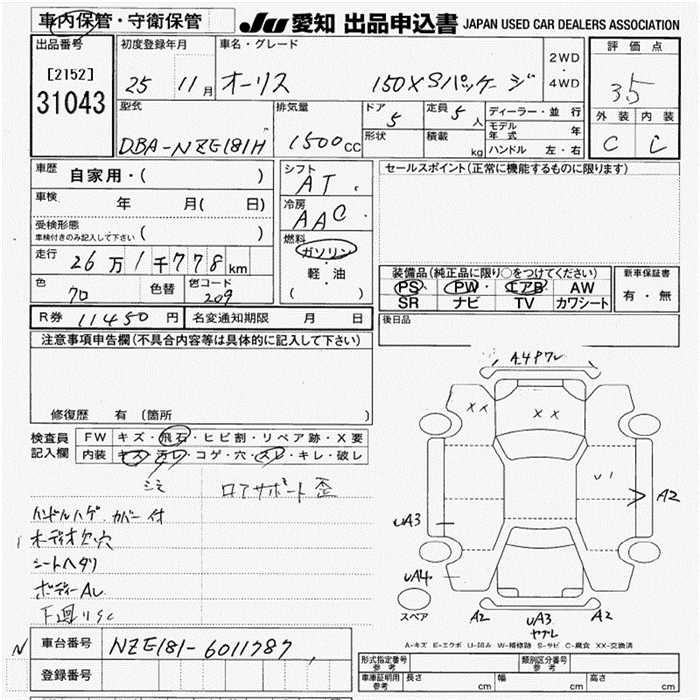 車内保管・守衛保管
JU 愛知 出品申込書 JAPAN USED CAR DEALERS ASSOCIATION
出品番号
[2152]
31043
初度登録年月
25 11月
車名・グレード
オーリス 150X Sパッケージ
2WD
・
4WD
評価点
3.5
外装 内装
C C
型式
DBA-NZE181H
排気量
1500cc
ドア
5
形状
定員
5人
積載
kg
ディーラー・並行
モデル年式 年
ハンドル 左・右
車歴
自家用・( )
車検
年 月( 日)
受検形態
車検付きのみ記入して下さい ( )
走行
26万1千778km
色
70
色替
色コード
209
シフト
AT
冷房
AAC
燃料
ガソリン
・
軽・油
( )
セールスポイント(正常に機能するものに限ります)
装備品(純正品に限り○をつけてください)
PS PW エアB AW
SR ナビ TV カワシート
新車保証書
有・無
R券 11450円 名変通知期限 月 日
後日品
注意事項申告欄(不具合内容等は具体的に記入して下さい)
修復歴 有 (箇所
検査員記入欄
FW キズ・飛石・ヒビ割・リペア跡・X要
内装 キズ・汚レ・コゲ・穴・スレ・キレ・破レ
ロアサポート歪
ハンドルハゲ カバー付
オーディオ欠 穴
シートヘタリ
ボディーAL
車台番号 NZE181-6011787
登録番号
XX
XX
U1
A2
UA3
UA4
スペア
A2
UA3
ヤブレ
A2
A-キズ E-エクボ U-凹み W-補修跡 S-サビ C-腐食 XX-交換済
形式指定番号
参考
類別区分番号
参考
車庫証明用
参考
長さ cm 幅 cm 高さ cm